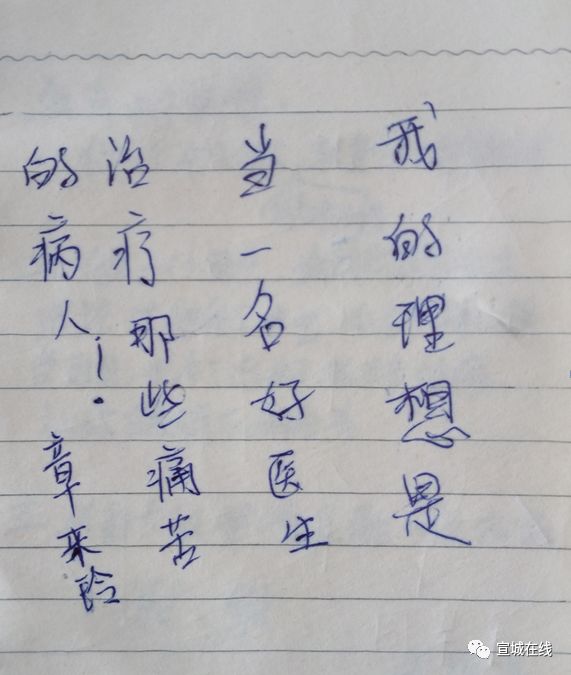 我的理想是
当一名好医生
治疗那些痛苦
的病人！章来玲
宣城在线